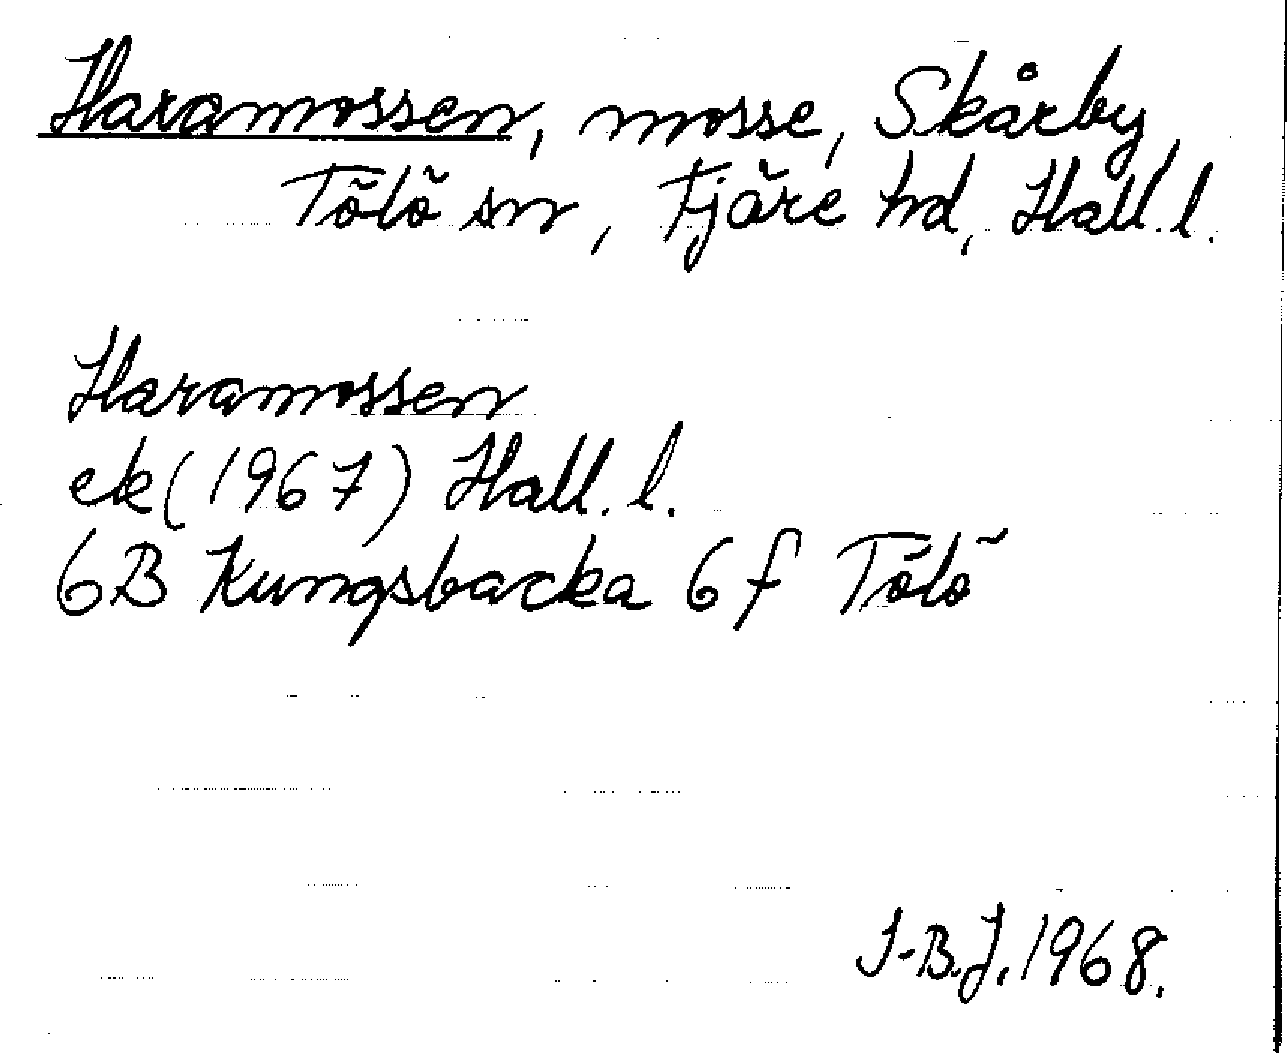 Haramossen, mosse, Skårby,
Tölö sn, Fjäre hd, Hall. l.
Haramossen
ek (1967) Hall. l.
6B Kungsbacka 6f Tölö
I-B.J. 1968.